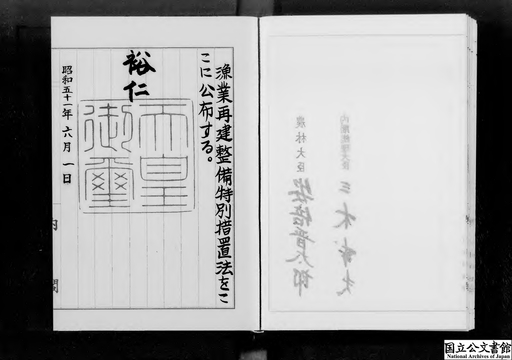 漁業再建整備特別措置法をこ
こに公布する。
裕仁
天皇
御璽
昭和五十一年六月一日
内閣
内閣総理大臣
三木武夫
農林大臣
安倍晋太郎
国立公文書館
National Archives of Japan